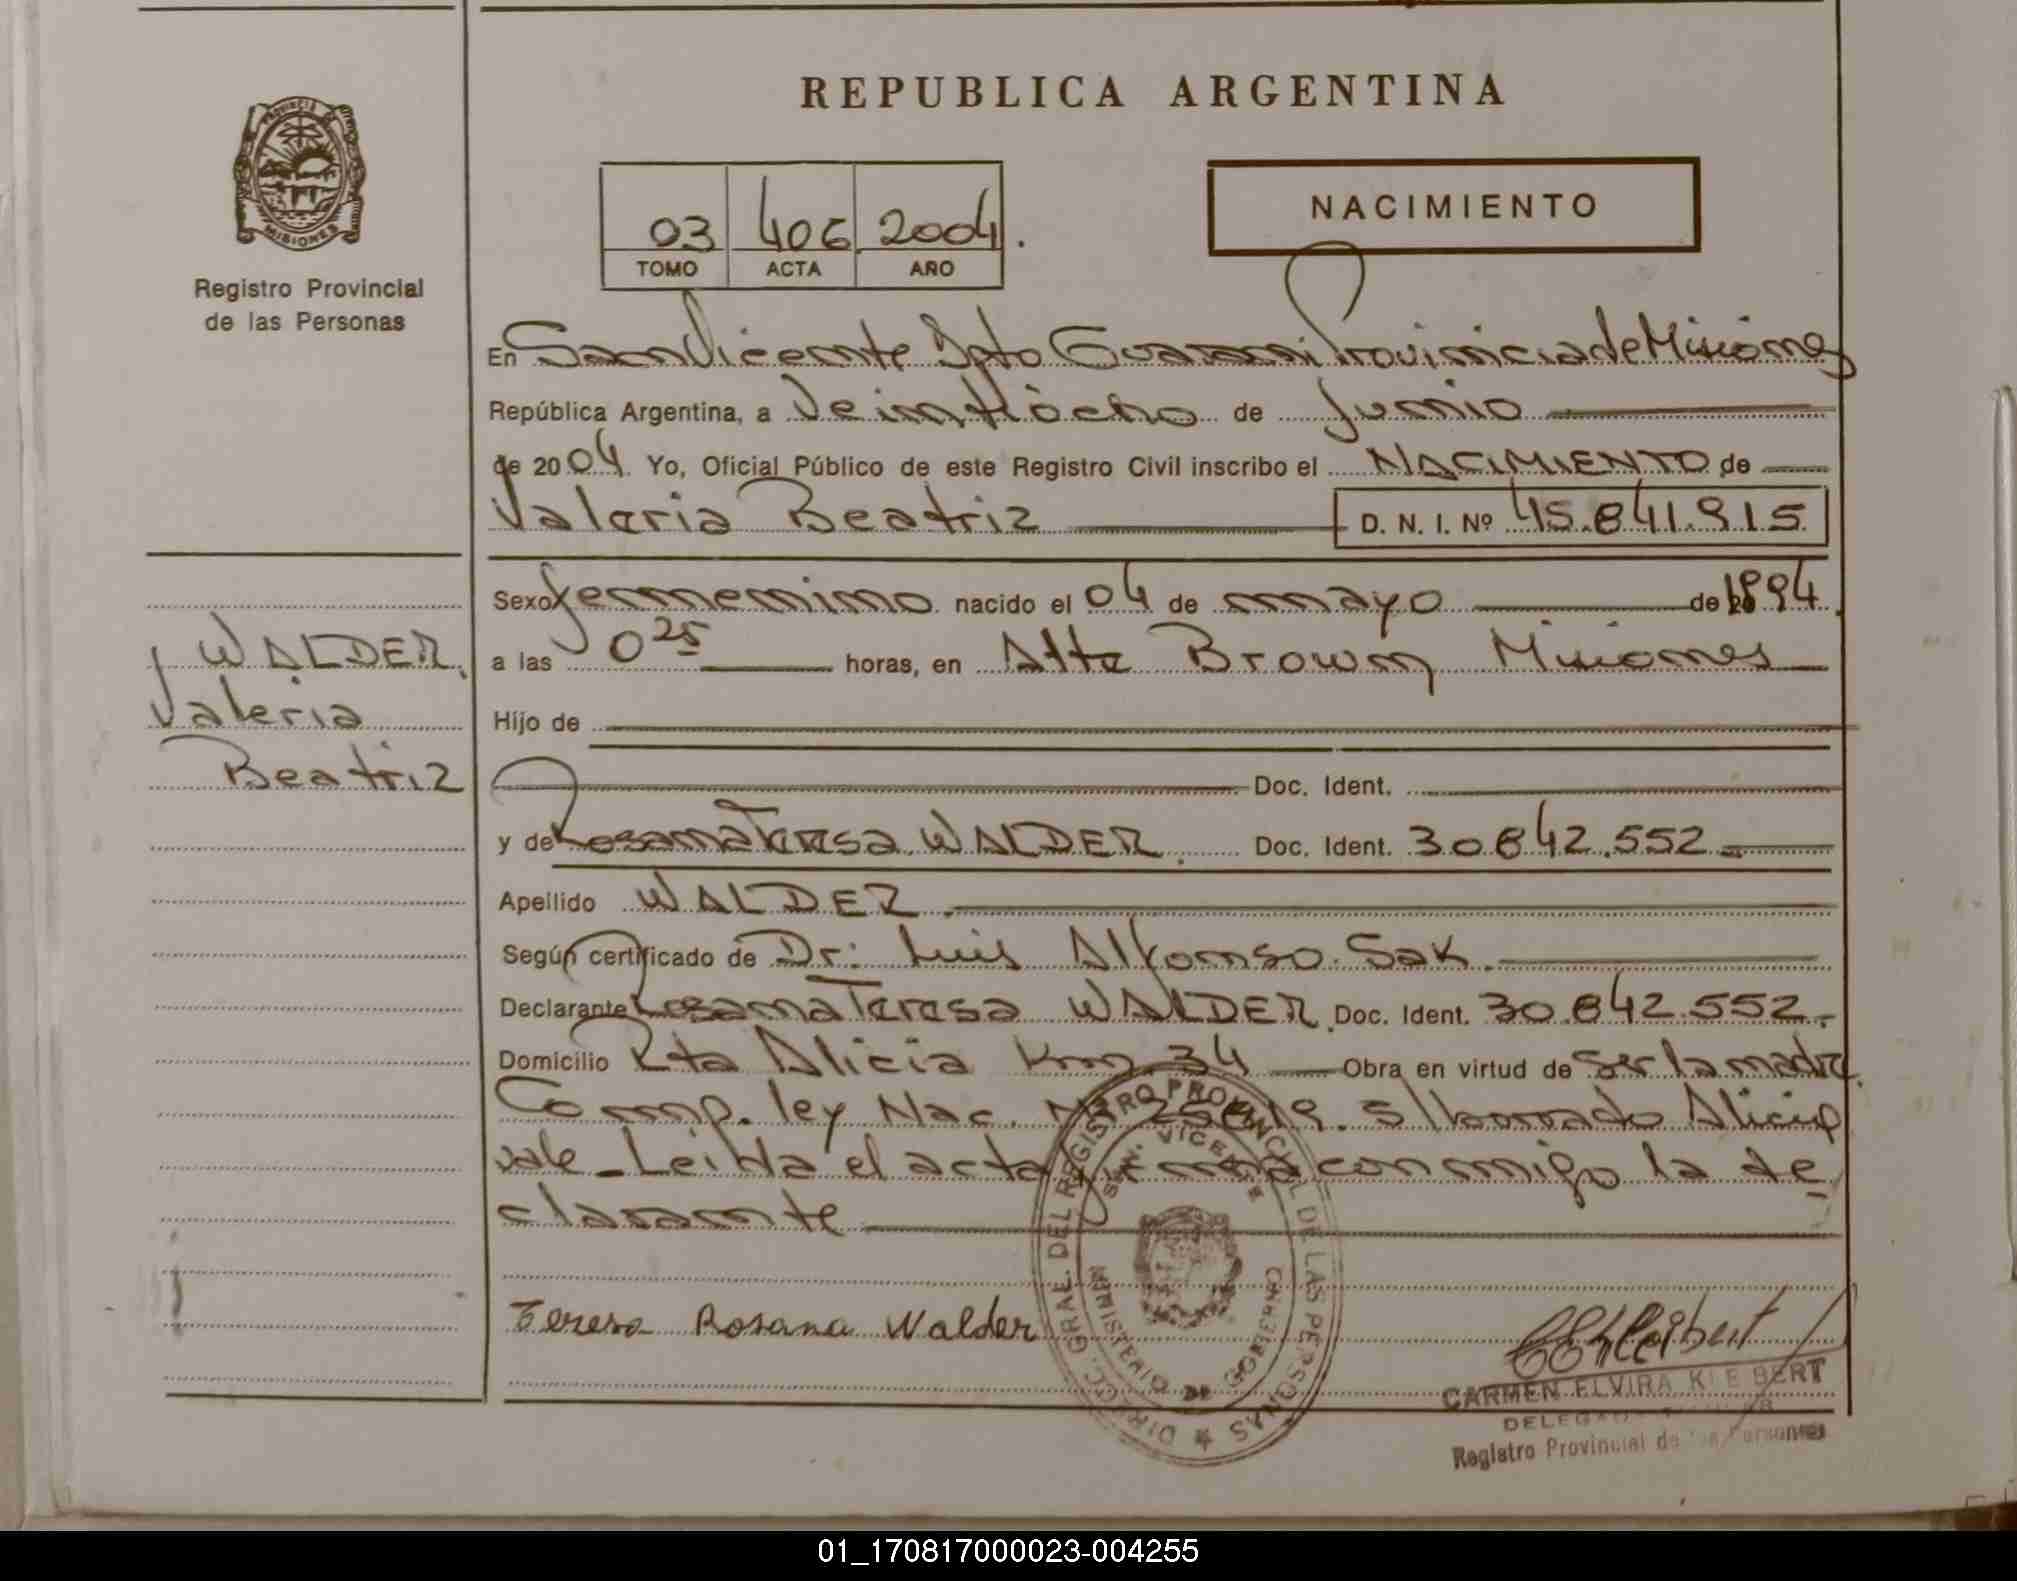 REPUBLICA ARGENTINA
PROVINCIA DE
MISIONES
Registro Provincial
de las Personas
NACIMIENTO
03 406 2004.
TOMO ACTA AÑO
En San Vicente Dpto Guarani Provincia de Misiones
República Argentina, a Veintiocho de Junio
de 2004 Yo, Oficial Público de este Registro Civil inscribo el NACIMIENTO de
Valeria Beatriz D. N. I. Nº 45.841.915
Sexo femenino nacido el 04 de mayo de 1994.
a las 0 25 horas, en Alte Brown Misiones
Hijo de
Doc. Ident.
y de Rosana Teresa WALDER. Doc. Ident. 30.842.552
Apellido WALDER.
Según certificado de Dr: Luis Alfonso Sak.
Declarante Rosana Teresa WALDER. Doc. Ident. 30.842.552.
Domicilio Rta Alicia Km. 34 Obra en virtud de ser la madre.
Comp. ley Nac. Nº 25.819. El borrado Alicia
vale - Leida el acta firma conmigo la de
clarante
WALDER,
Valeria
Beatriz
Teresa Rosana Walder
DIRECC. GRAL. DEL REGISTRO PROVINCIAL DE LAS PERSONAS
SAN VICENTE
MINISTERIO DE GOBIERNO
CEKleibert
CARMEN ELVIRA KLEIBERT
DELEGADA TITULAR
Registro Provincial de las Personas
01_170817000023-004255